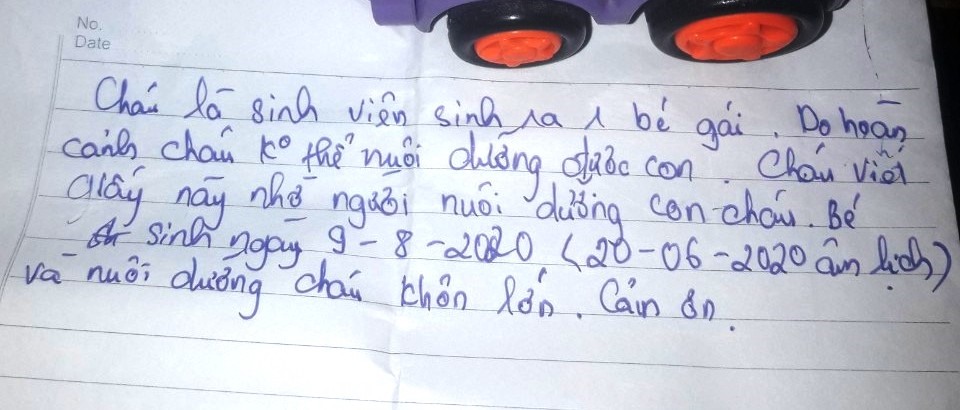 No.
Date
Cháu là sinh viên sinh ra 1 bé gái. Do hoàn
cảnh cháu ko thể nuôi dưỡng được con. Cháu viết
giấy này nhờ người nuôi dưỡng con cháu. Bé
sinh ngày 9-8-2020 (20-06-2020 âm lịch)
và nuôi dưỡng cháu khôn lớn. Cảm ơn.